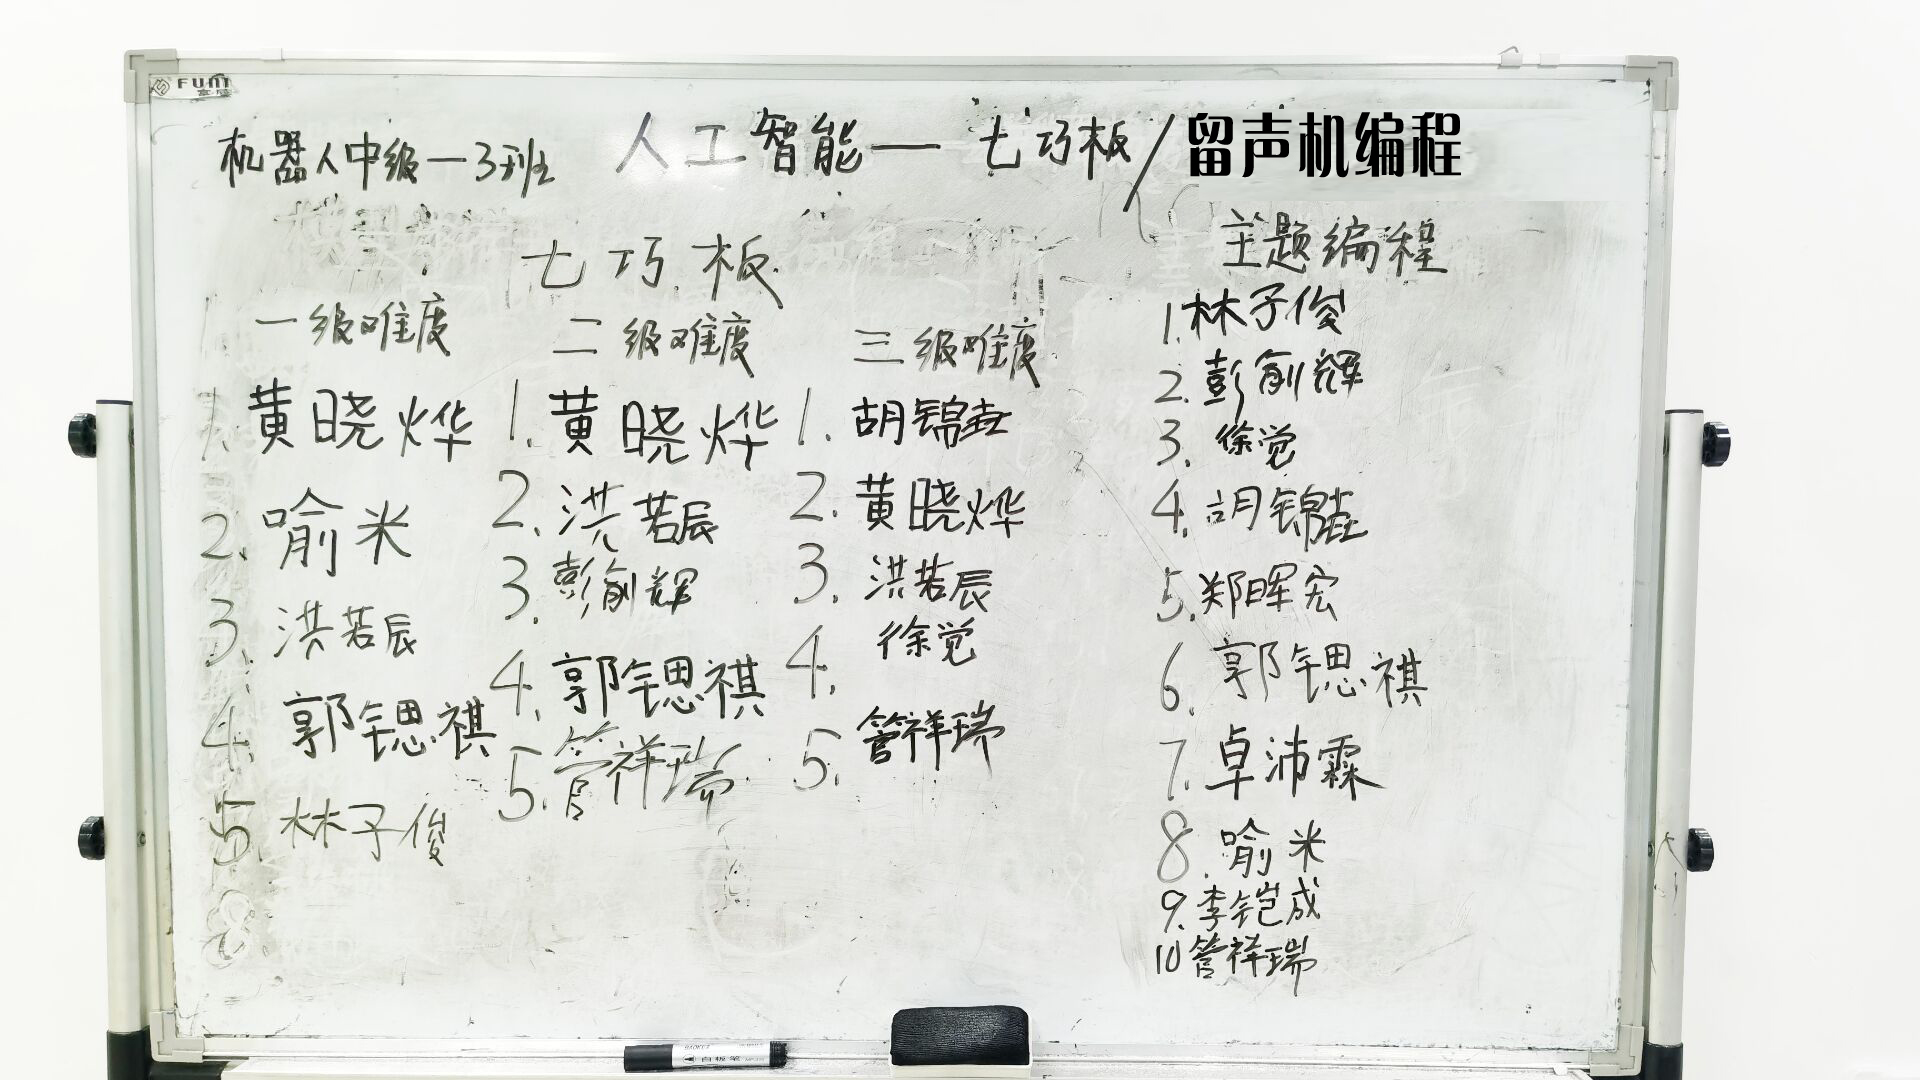 FUNI
机器人中级一3班
人工智能—七巧板/留声机编程
七巧板
一级难度
1. 黄晓烨
2. 喻米
3. 洪若辰
4. 郭锶祺
5. 林子俊
二级难度
1. 黄晓烨
2. 洪若辰
3. 彭俞辉
4. 郭锶祺
5. 管祥瑞
三级难度
1. 胡锦垚
2. 黄晓烨
3. 洪若辰
4. 徐觉
5. 管祥瑞
主题编程
1. 林子俊
2. 彭俞辉
3. 徐觉
4. 胡锦垚
5. 郑晖宏
6. 郭锶祺
7. 卓沛霖
8. 喻米
9. 李铠成
10 管祥瑞
白板笔